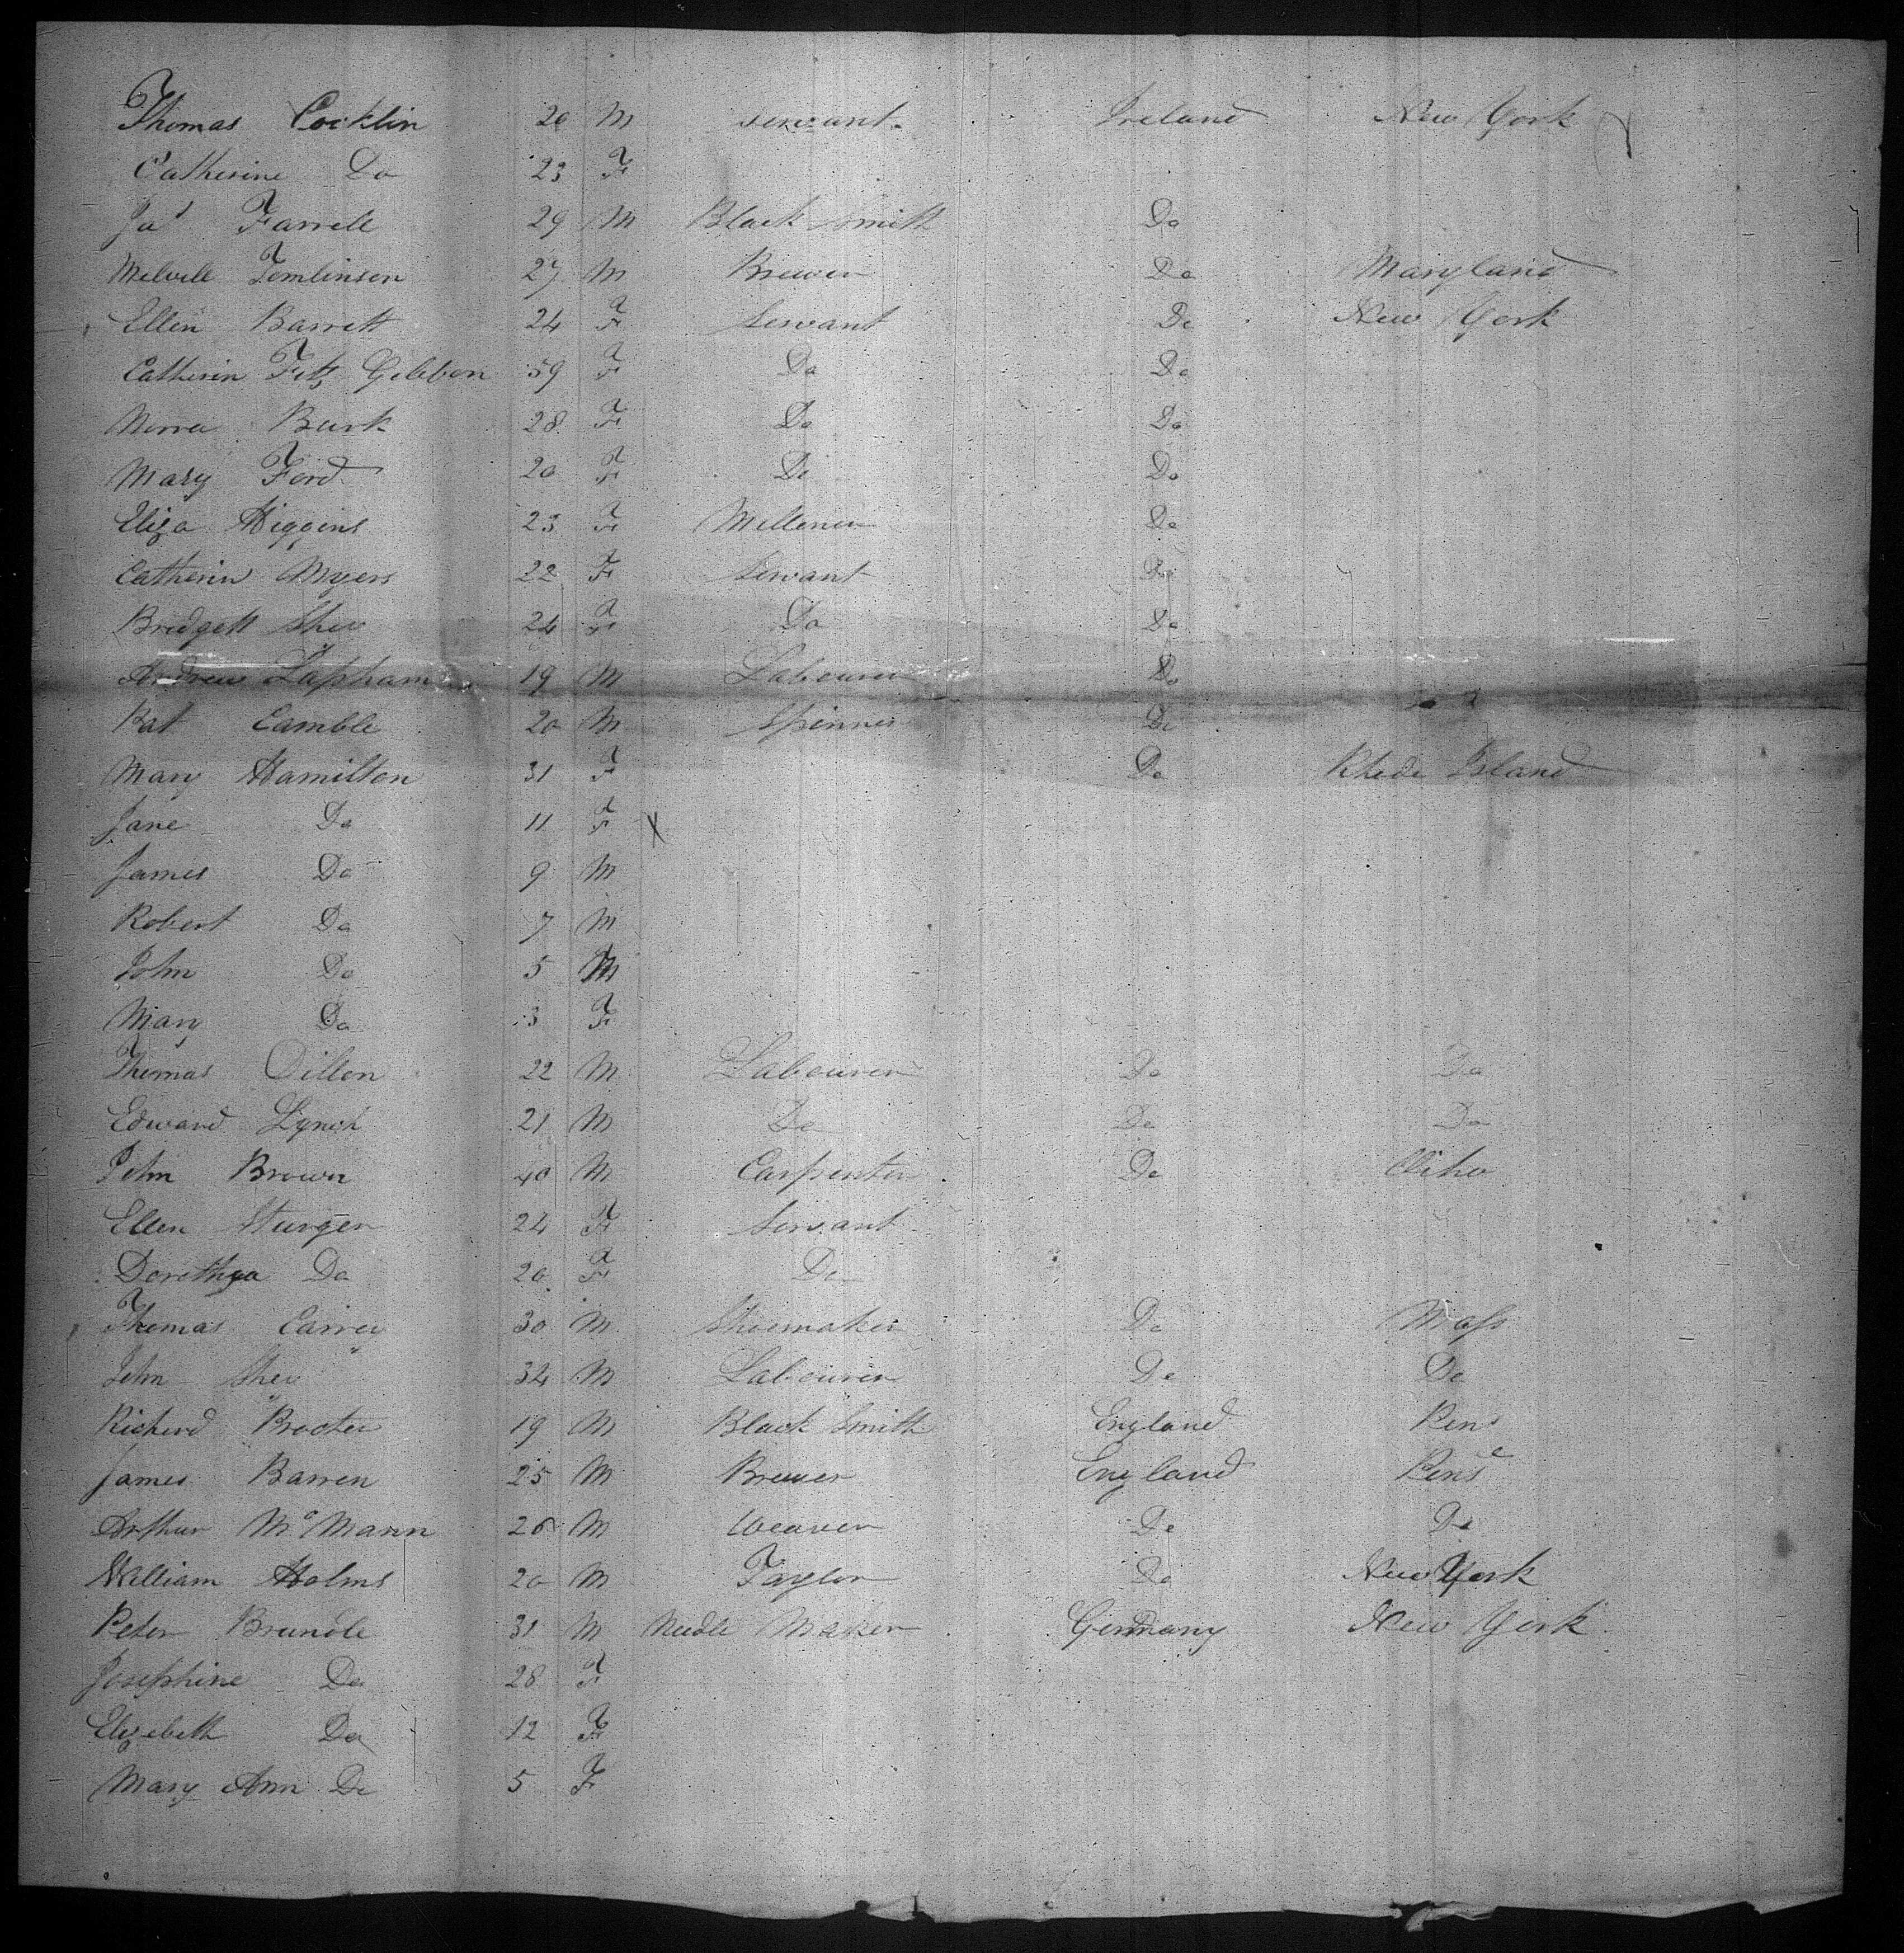 Thomas Cocklin 20 M servant Ireland New York
Catherine Do 23 F
Jas Farrell 29 M Black Smith Do
Melvile Tomlinson 27 M Brewer Do Maryland
Ellen Barrett 24 F Servant Do New York
Catherin Fitz Gibbon 59 F Do Do
Norra Burk 28 F Do Do
Mary Ford 20 F Do Do
Eliza Higgins 23 F Millener Do
Catherin Myers 22 F Servant Do
Bridgett Shew 24 F Do Do
Andrew Lapham 19 M Labourer Do
Pat Camble 20 M Spinner Do
Mary Hamilton 31 F Do Rhode Island
Jane Do 11 F X
James Do 9 M
Robert Do 7 M
John Do 5 M
Mary Do 3 F
Thomas Dillon 22 M Labourer Do Do
Edward Lynch 21 M Do Do Do
John Brown 40 M Carpenter Do Ohio
Ellen Sturgen 24 F Servant
Dorothya Do 20 F Do
Thomas Carrey 30 M Shoemaker Do Mass
John Shew 34 M Labourer Do Do
Richerd Procter 19 M Black Smith England Pens
James Barren 25 M Brewer England Pens
Arthur McMann 26 M Weaver Do Do
William Holms 20 M Taylor Do New York
Peter Brundle 31 M Needle Maker Germany New York
Josephine Do 28 F
Elizebeth Do 12 F
Mary Ann Do 5 F